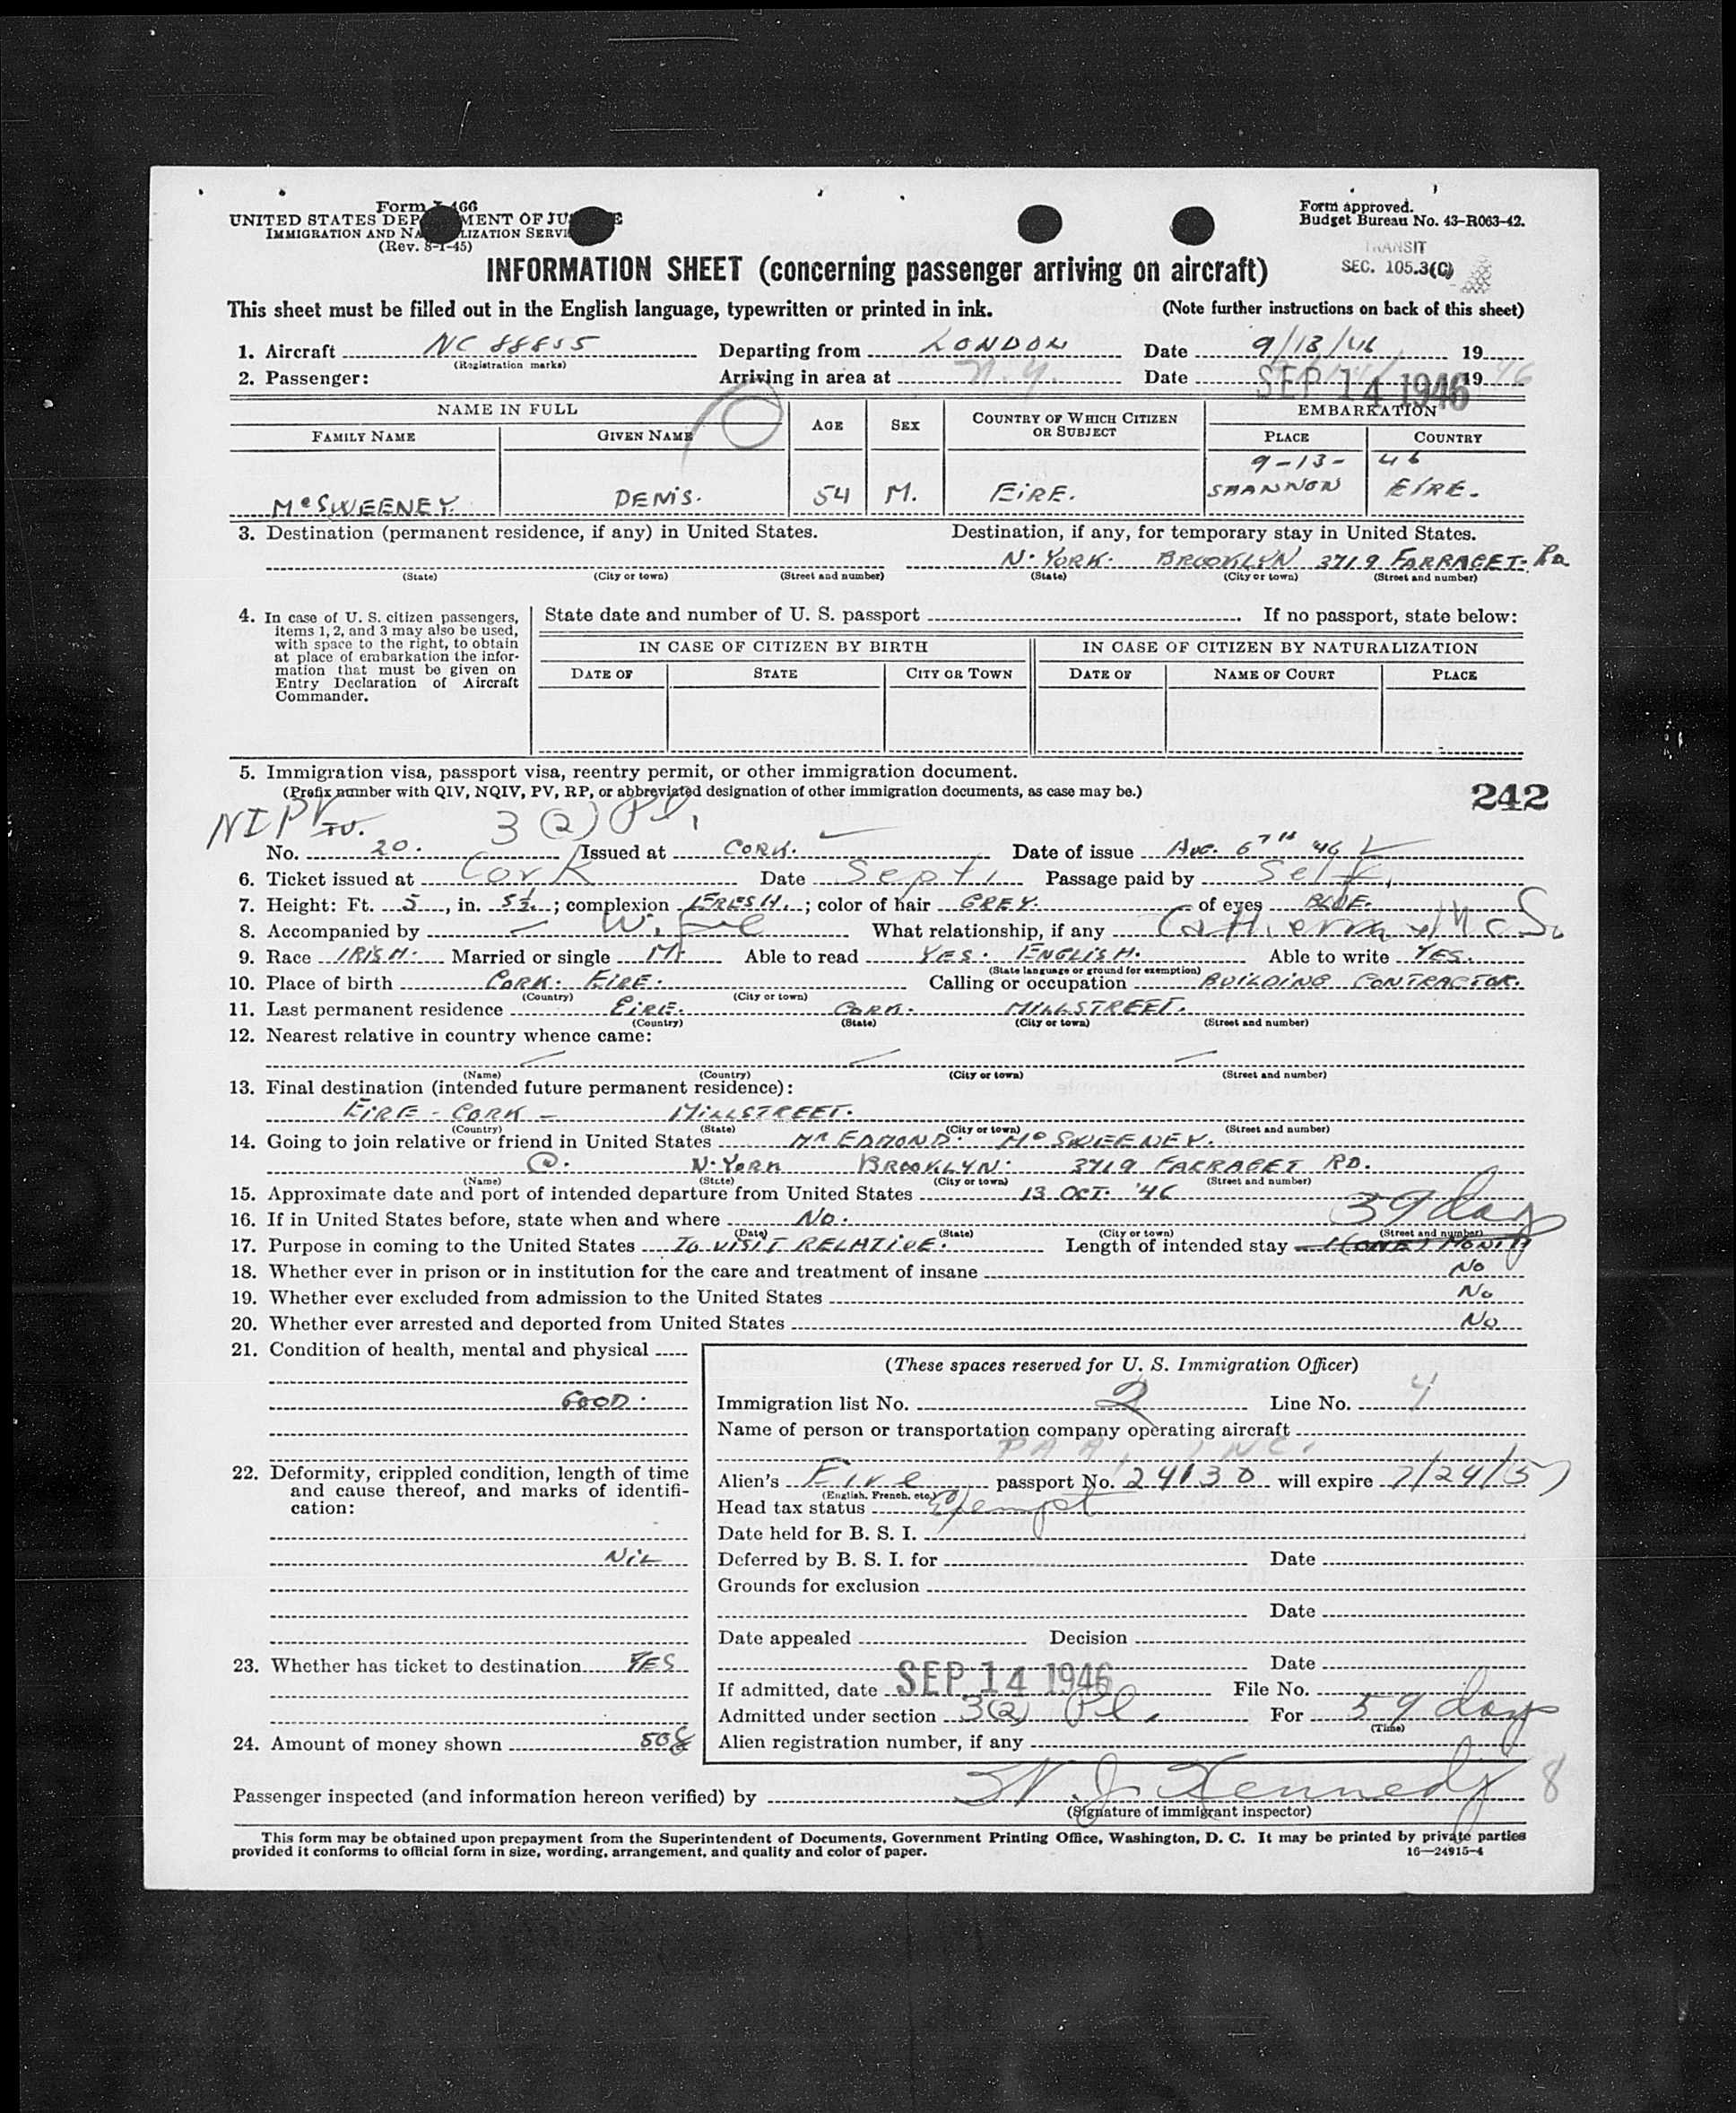 Form I-466
UNITED STATES DEPARTMENT OF JUSTICE
IMMIGRATION AND NATURALIZATION SERVICE
(Rev. 8-1-45)
Form approved.
Budget Bureau No. 43-R063-42.
TRANSIT
SEC. 105.3(C)
INFORMATION SHEET (concerning passenger arriving on aircraft)
This sheet must be filled out in the English language, typewritten or printed in ink. (Note further instructions on back of this sheet)
1. Aircraft NC 88855 Departing from LONDON Date 9/13/46 19
(Registration marks)
2. Passenger: Arriving in area at N.Y. Date SEP 14 1946 19 46
NAME IN FULL AGE SEX COUNTRY OF WHICH CITIZEN OR SUBJECT EMBARKATION
FAMILY NAME GIVEN NAME PLACE COUNTRY
9-13-46
McSWEENEY. DENIS. 54 M. EIRE. SHANNON EIRE.
3. Destination (permanent residence, if any) in United States. Destination, if any, for temporary stay in United States.
N. YORK. BROOKLYN 3719 FARRAGET. Rd
(State) (City or town) (Street and number) (State) (City or town) (Street and number)
4. In case of U. S. citizen passengers, items 1, 2, and 3 may also be used, with space to the right, to obtain at place of embarkation the information that must be given on Entry Declaration of Aircraft Commander.
State date and number of U. S. passport . If no passport, state below:
IN CASE OF CITIZEN BY BIRTH IN CASE OF CITIZEN BY NATURALIZATION
DATE OF STATE CITY OR TOWN DATE OF NAME OF COURT PLACE
5. Immigration visa, passport visa, reentry permit, or other immigration document.
(Prefix number with QIV, NQIV, PV, RP, or abbreviated designation of other immigration documents, as case may be.)
242
NIPV 3(2) Pl.
No. 20. Issued at CORK. Date of issue AUG. 6TH 46
6. Ticket issued at Cork Date Sept 1 Passage paid by Self
7. Height: Ft. 5, in. 5½.; complexion FRESH.; color of hair GREY. of eyes BLUE.
8. Accompanied by Wife What relationship, if any Catherine McS.
9. Race IRISH. Married or single M. Able to read YES. ENGLISH. Able to write YES.
(State language or ground for exemption)
10. Place of birth CORK. EIRE. Calling or occupation BUILDING CONTRACTOR.
(Country) (City or town)
11. Last permanent residence EIRE. CORK. MILLSTREET.
(Country) (State) (City or town) (Street and number)
12. Nearest relative in country whence came:
(Name) (Country) (City or town) (Street and number)
13. Final destination (intended future permanent residence):
EIRE - CORK - MILLSTREET.
(Country) (State) (City or town) (Street and number)
14. Going to join relative or friend in United States MR EDMOND. McSWEENEY.
@. N. YORK BROOKLYN. 3719 FARRAGET RD.
(Name) (State) (City or town) (Street and number)
15. Approximate date and port of intended departure from United States 13 OCT. '46
16. If in United States before, state when and where No. 59 days
(Date) (State) (City or town) (Street and number)
17. Purpose in coming to the United States TO VISIT RELATIVE. Length of intended stay 1 (ONE) MONTH
18. Whether ever in prison or in institution for the care and treatment of insane No
19. Whether ever excluded from admission to the United States No
20. Whether ever arrested and deported from United States No
21. Condition of health, mental and physical
GOOD.
22. Deformity, crippled condition, length of time and cause thereof, and marks of identification:
NIL
23. Whether has ticket to destination YES
24. Amount of money shown 50£
(These spaces reserved for U. S. Immigration Officer)
Immigration list No. 2 Line No. 4
Name of person or transportation company operating aircraft
PAA, INC.
Alien's Eire passport No. 24130 will expire 7/24/51
(English, French, etc.)
Head tax status Exempt
Date held for B. S. I.
Deferred by B. S. I. for Date
Grounds for exclusion
Date
Date appealed Decision
Date
If admitted, date SEP 14 1946 File No.
Admitted under section 3(2) Pl. For 59 days
(Time)
Alien registration number, if any
Passenger inspected (and information hereon verified) by W. J. Kennedy 8
(Signature of immigrant inspector)
This form may be obtained upon prepayment from the Superintendent of Documents, Government Printing Office, Washington, D. C. It may be printed by private parties
provided it conforms to official form in size, wording, arrangement, and quality and color of paper. 16—24915-4